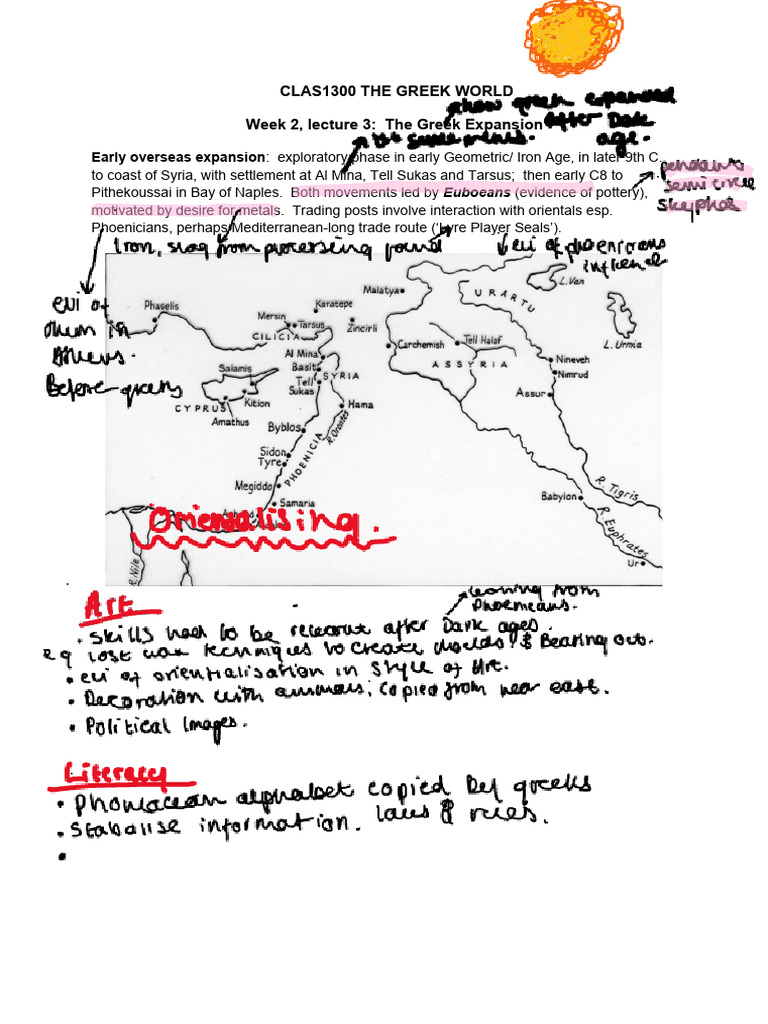 CLAS1300 THE GREEK WORLD
how greek expanded
After Dark
age.
Week 2, lecture 3:  The Greek Expansion
Early overseas expansion:  exploratory phase in early Geometric/ Iron Age, in later 9th C.
to coast of Syria, with settlement at Al Mina, Tell Sukas and Tarsus;  then early C8 to
Pithekoussai in Bay of Naples.  Both movements led by Euboeans (evidence of pottery),
motivated by desire for metals.  Trading posts involve interaction with orientals esp.
Phoenicians, perhaps Mediterranean-long trade route ('Lyre Player Seals').
pendants
semi circle
skyphos
Iron, slag from processing found
evi of phoenicians
influence
evi of
them in
Athens.
Before greeks
Malatya
URARTU
L. Van
L. Urmia
Phaselis
Karatepe
Mersin
Tarsus
Zincirli
CILICIA
Carchemish
Tell Halaf
ASSYRIA
Nineveh
Nimrud
Assur
Al Mina
Basit
SYRIA
Tell
Sukas
Salamis
Kition
CYPRUS
Amathus
Hama
R. Orontes
Byblos
PHOENICIA
Sidon
Tyre
Megiddo
Samaria
Babylon
R. Tigris
R. Euphrates
Ur
R. Nile
Orientalising.
Art
leaning from
Phoenicans.
• Skills had to be relearnt after Dark ages.
eg lost wax techniques to create moulds & Bearing out.
• evi of orientalisation in Style of Art.
• Decoration with animals; copied from near east.
• Political Images.
Literacy
• Phoniacean alphabet copied by greeks
• Stabalise information. laws & rules.
•